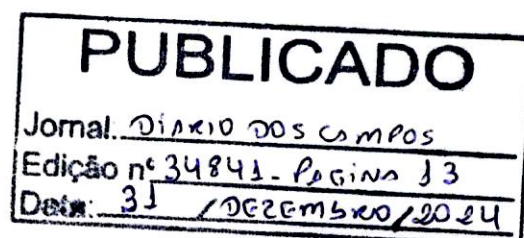 PUBLICADO
Jornal: DIÁRIO DOS CAMPOS
Edição nº 34841 - PAGINA 13
Data: 31 / DEZEMBRO / 2024